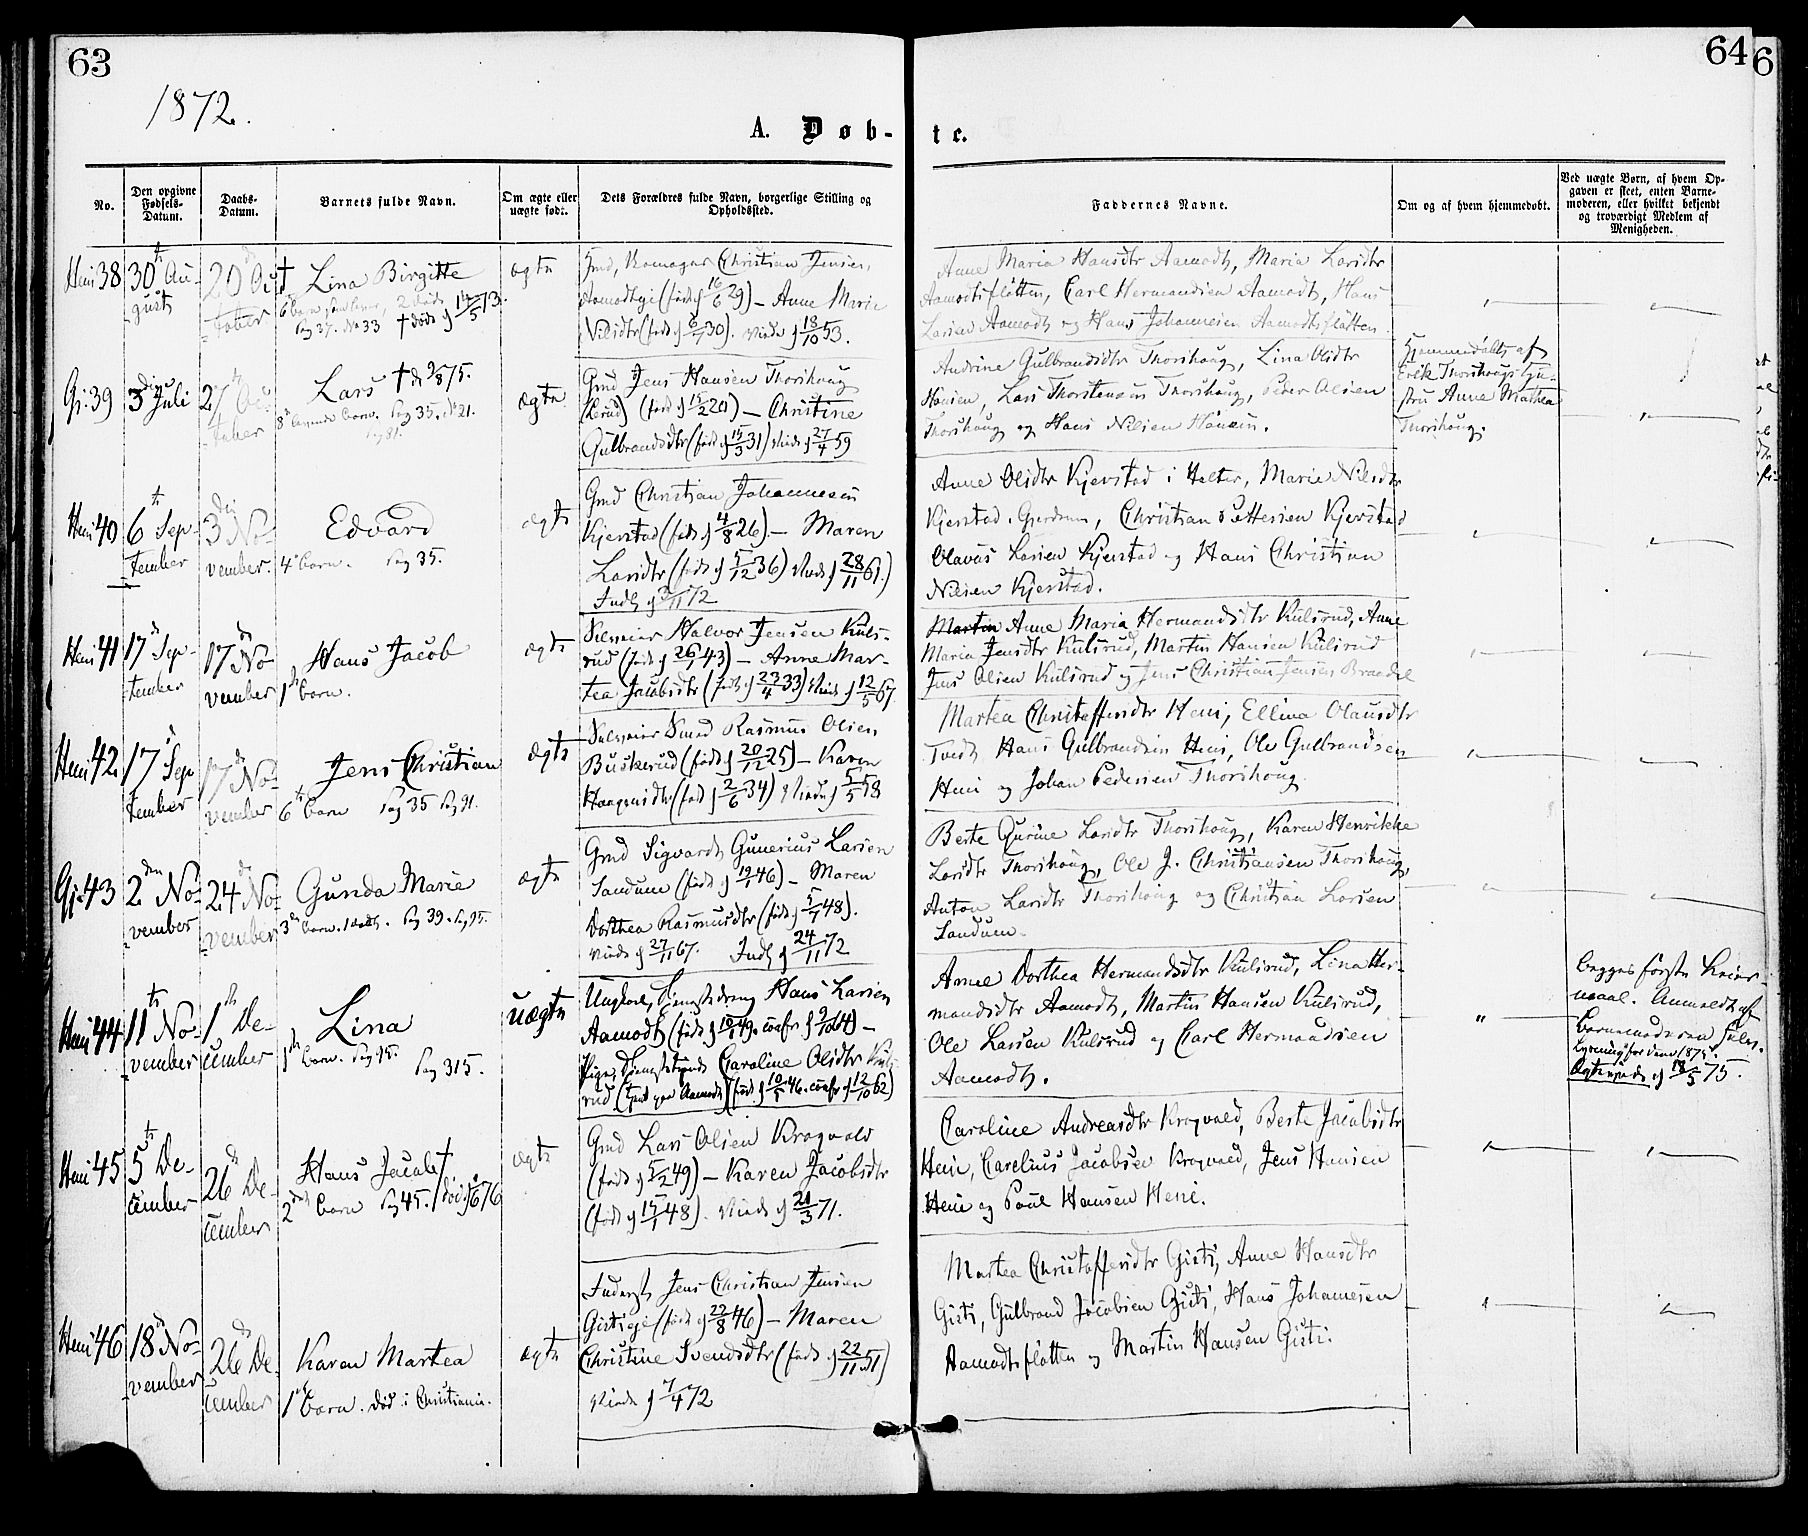 63
64
6
1872.
A. Døb-
te.
No.
Den opgivne Fødsels-Datum.
Daabs-Datum.
Barnets fulde Navn.
Om ægte eller uægte født.
Dets Forældres fulde Navn, borgerlige Stilling og Opholdssted.
Faddernes Navne.
Om og af hvem hjemmedøbt.
Ved uægte Børn, af hvem Op-
gaven er skeet, enten Barne-
moderen, eller hvilket bekjendt
og troværdigt Medlem af
Menigheden.
38
30te Au-
gust
20
tober
† Lina Birgitte
Pag 37. No 33 † døde 13.
ægte
Christian Jensen,
(født 16/6 29) – Anne Marie
Nilsdtr (født 6/7 30). Viede d 18/10 53.
Anne Maria Hansdtr Aamodt, Maria Larsdtr
Aamodtsflåtten, Carl Hermandsen Aamodt, Hans
Larsen Aamodt og Hans Johannesen Aamodtsflåtten.
39
3die Juli
27
tober
Lars
8de barn. Pag 35. No 21.
Pag 81.
ægte
Gmd Jens Hansen Thorshoug
(født d 15/2 20) – Christine
Gulbrandsdtr (født d 15/3 31) Viede d 27/4 59
Andrine Gulbrandsdtr Thorshoug, Lina Olsdtr
Lars Thorstensen Thorshoug, Peder Olsen
Thorshoug og Hans Nilsen
Hjemmedøbt af
Erik Thorshougs Hu-
stru Anne Mathea
Thorshoug.
40
6te Sep-
tember
3die No-
vember.
Edvard
4de barn. Pag 35.
ægte
Gmd Christian Johannesen
Kjerstad (født d 4/8 26) – Maren
Larsdtr (født d 5/12 36) Viede d 28/11 61.)
Indl d 3/11 72
Anne Olsdtr Kjerstad i Holter, Marie Nilsdtr
Kjerstad i Gjerdrum, Christian Pettersen Kjerstad
Olavus Larsen Kjerstad og Hans Christian
Nilsen Kjerstad.
41
17de Sep-
tember
17de No-
vember
Hans Jacob
1ste barn.
ægte
Halvor Jensen Kuls-
rud (født d 26/1 43) – Anne Mar-
tea Jacobsdtr (født d 23/4 33) Viede d 12/5 67.
Anne Maria Hermandsdtr Kulsrud, Anne
Maria Jensdtr Kulsrud, Martin Hansen Kulsrud
Jens Olsen Kulsrud og Jens Christian Jensen
42
17de Sep-
tember
17de No-
vember
Jens Christian
6te barn Pag 35 Pag 91.
ægte
Rasmus Olsen
Buskerud (født d 20/12 25) – Karen
Haagensdtr (født d 2/6 34) Viede d 5/5 58
Martea Christoffersdtr Heni, Ellina Olausdtr
Hans Gulbrandsen Heni, Ole Gulbrandsen
Heni og Johan Pedersen Thorshoug.
43
2den No-
vember
24de No-
vember
Gunda Marie
3die barn. 1 død. Pag 39. Pag 95.
ægte
Gmd Sigvardt Gunerius Larsen
Sandum (født d 19/1 46) – Maren
Dorthea Rasmusdtr (født d 5/1 48).
Viede d 27/11 67. Indl d 24/11 72
Berte Gurine Larsdtr Thorshoug, Karen Henrikke
Larsdtr Thorshoug, Ole J. Christiansen Thorshoug,
Anton Larsdtr Thorshoug og Christian Larsen
Sandum.
44
11te No-
vember
1ste De-
cember
Lina
1ste barn. Pag 315.
uægte
Ungkarl, Hans Larsen
Aamodt (født d 49, confr d 64) –
Pige, Caroline Olsdtr Kuls-
rud (født d 46. confr d 12/10 62)
Anne Dorthea Hermandsdtr Kulsrud, Lina Her-
mandsdtr Aamodt, Martin Hansen Kulsrud,
Ole Larsen Kulsrud og Carl Hermandsen
Aamodt.
begges første Leier-
maal. Anmeldt af
Barnemoderen
d 75.
45
5te De-
cember
26de De-
cember
Hans Jacob †
2det barn Pag 45. død 76
ægte
Gmd Lars Olsen Krogvold
(født d 5/2 49) – Karen Jacobsdtr
(født d 15/1 48). Viede d 21/3 71.
Caroline Andreasdtr Krogvold, Berte Jacobsdtr
Heni, Carelius Jacobsen Krogvold, Jens Hansen
Heni og Paul Hansen Heni.
46
18de No-
vember
26de De-
cember
Karen Martea
1ste barn. Død i Christiania.
ægte
Inderst Jens Christian Jensen
(født d 22/8 46) – Maren
Christine Svendsdtr (født d 22/11 51)
Viede d 7/4 72
Martea Christoffersdtr Gisti, Anne Hansdtr
Gisti, Gulbrand Jacobsen Gisti, Hans Johannesen
Aamodtsflåtten og Martin Hansen Gisti.